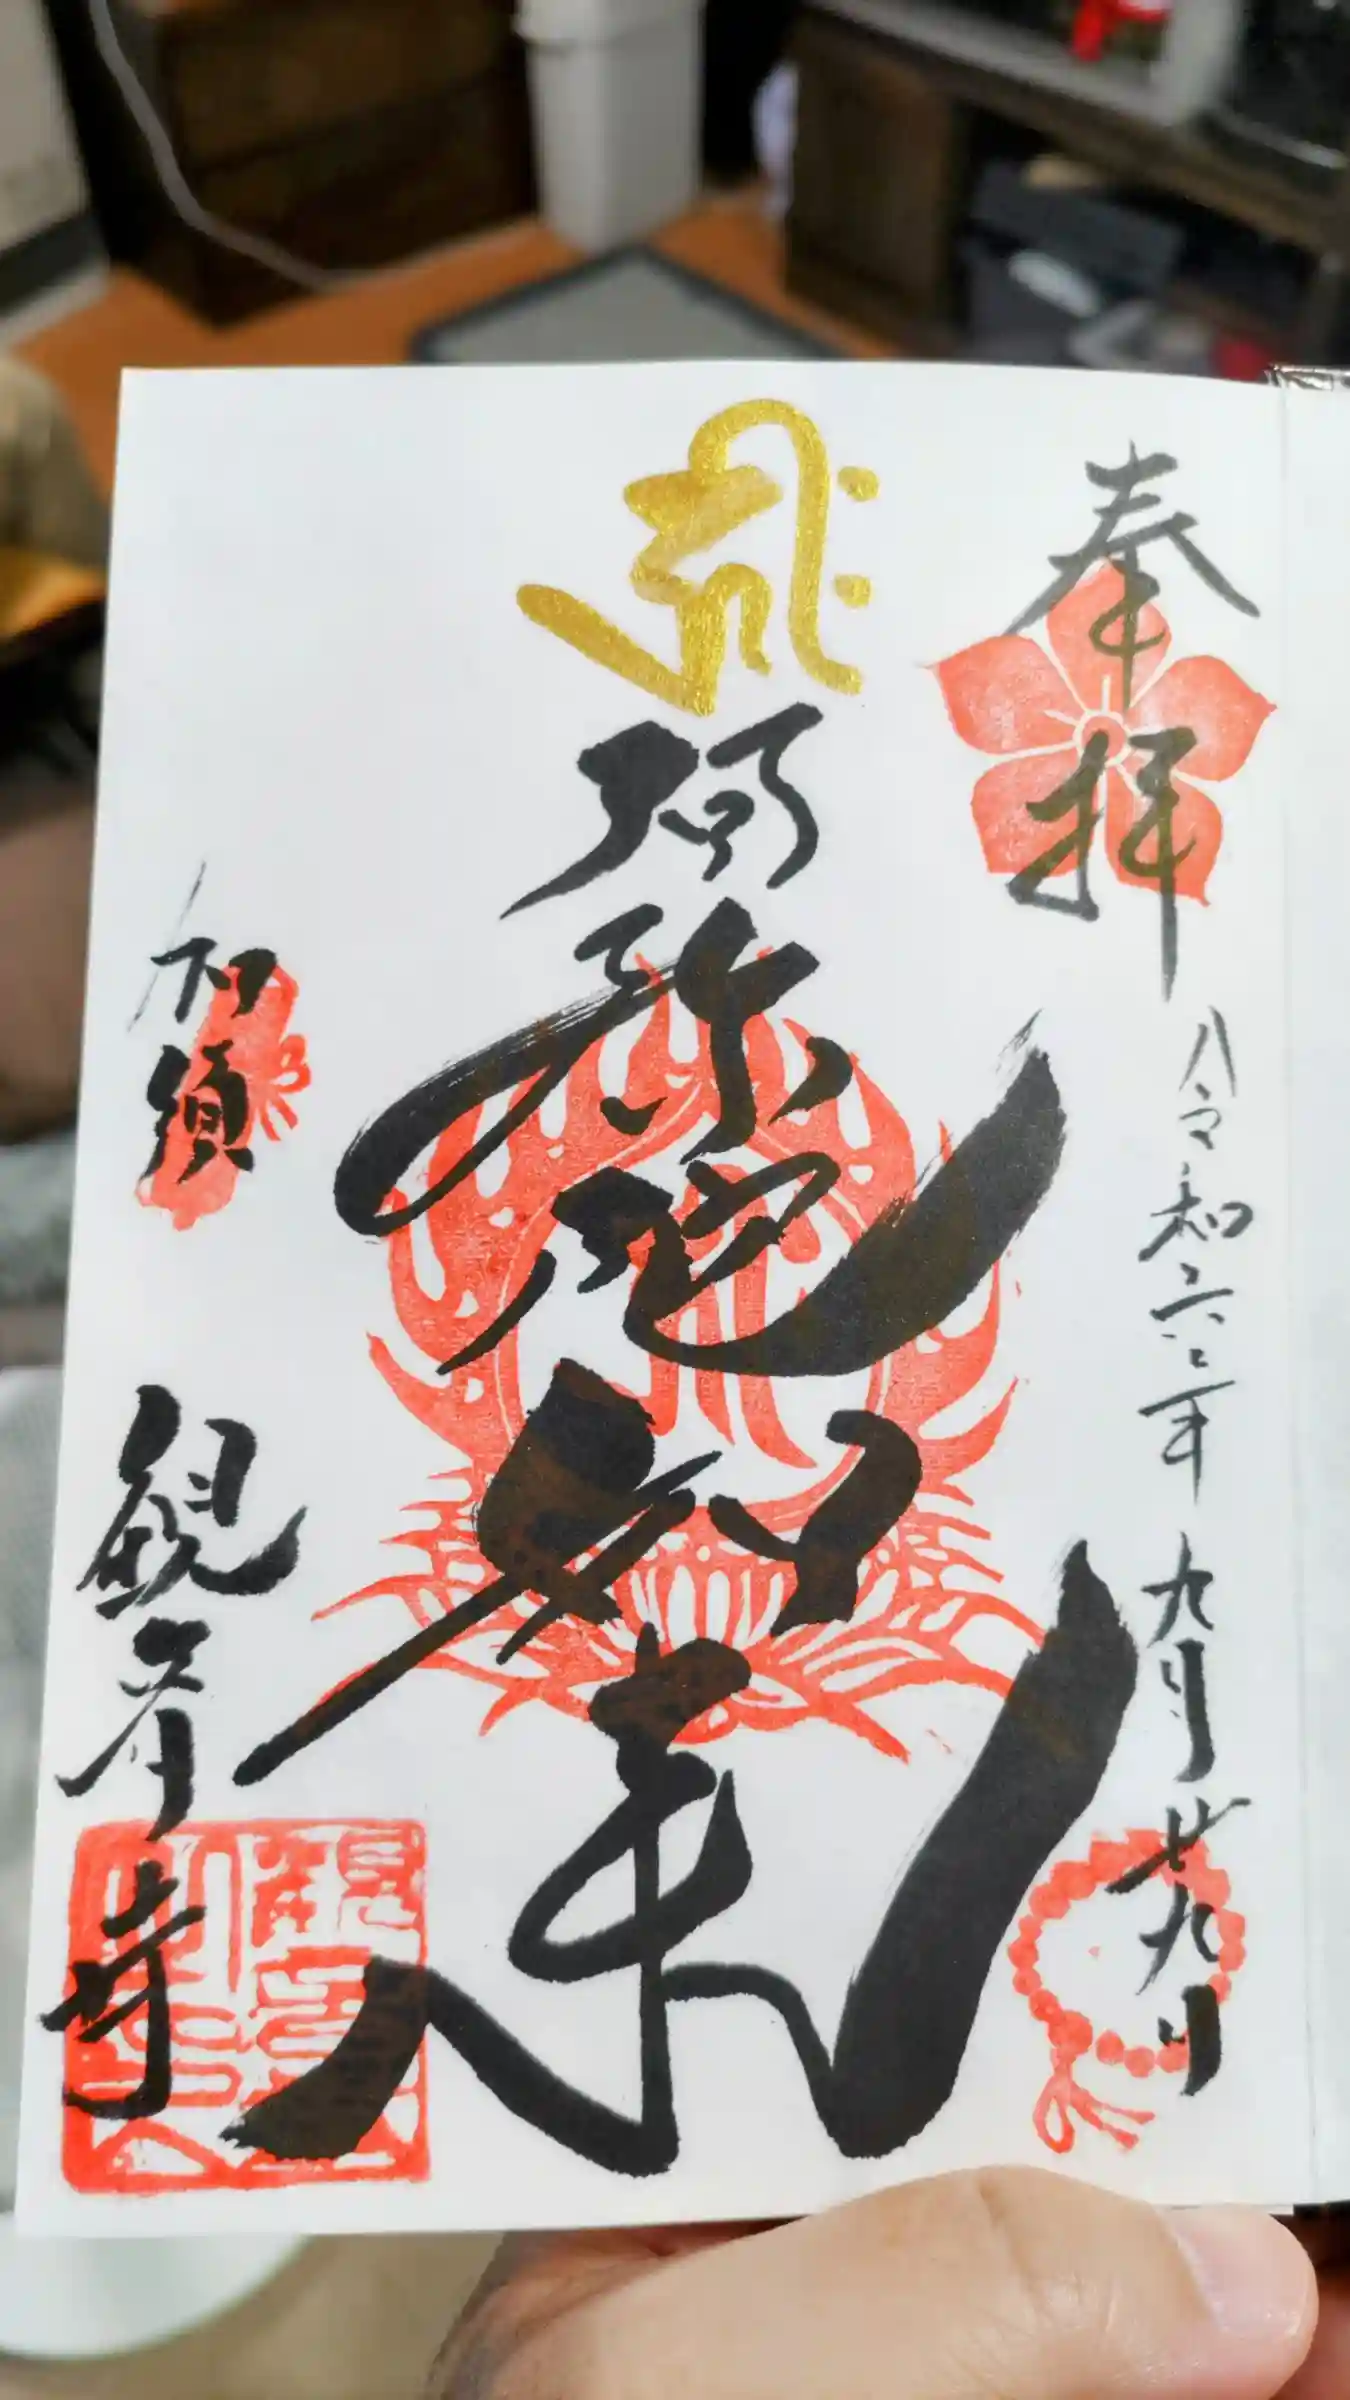 奉拝
令和六年九月廿九日
キリーク
阿弥陀如来
加須
観音寺